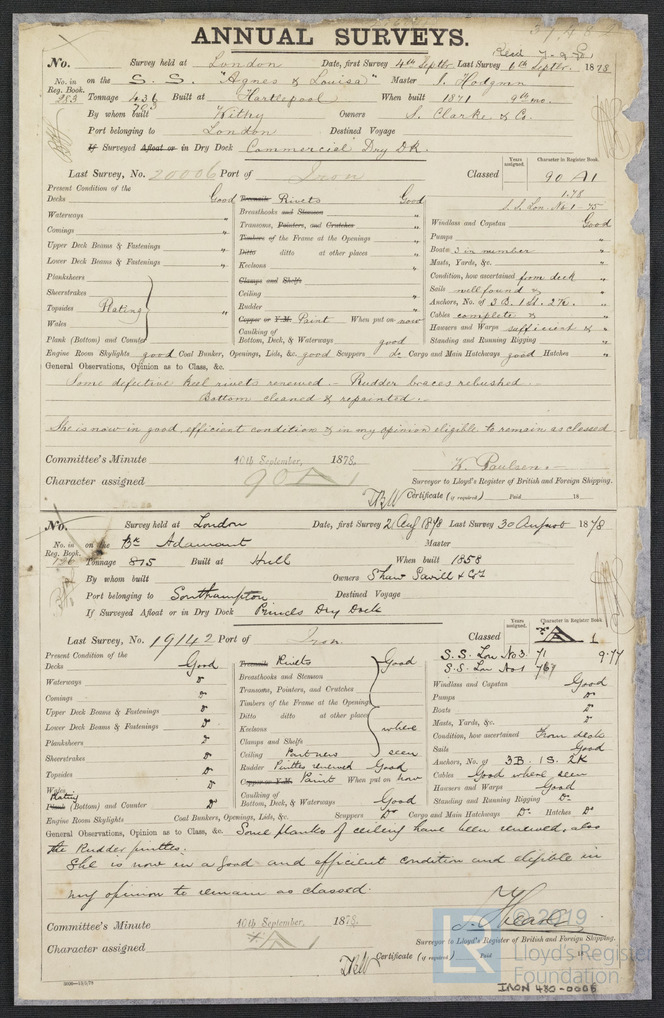 ANNUAL SURVEYS.
No. Survey held at London Date, first Survey 4th Septbr. Last Survey 6th Septbr. 1878
No. in Reg. Book. on the S. S. "Agnes & Louisa" Master J. Hodgson
283 Tonnage 436 703 Built at Hartlepool When built 1871 9th mo.
By whom built Withy Owners J. Clarke & Co.
Port belonging to London Destined Voyage
If Surveyed Afloat or in Dry Dock Commercial Dry Dk.
Last Survey, No. 20006 Port of Iron Classed 90 A1
Years assigned. Character in Register Book.
1.78
S.S. Lon. No 1-75
Present Condition of the
Decks Good Treenails Rivets Good
Waterways " Breasthooks and Stemson " Windlass and Capstan Good
Comings " Transoms, Pointers, and Crutches " Pumps "
Upper Deck Beams & Fastenings " Timbers of the Frame at the Openings " Boats 3 in number "
Lower Deck Beams & Fastenings " Ditto ditto at other places " Masts, Yards, &c. "
Planksheers Keelsons " Condition, how ascertained from deck "
Sheerstrakes Clamps and Shelfs Sails well found & "
Topsides Plating " Ceiling " Anchors, No. of 3 B. 1 St. 2 K. "
Wales Rudder " Cables complete & "
Copper or Y.M. Paint When put on now Hawsers and Warps sufficient & "
Plank (Bottom) and Counter Caulking of Bottom, Deck, & Waterways good Standing and Running Rigging "
Engine Room Skylights good Coal Bunker, Openings, Lids, &c. good Scuppers do Cargo and Main Hatchways good Hatches "
General Observations, Opinion as to Class, &c.
Some defective keel rivets renewed - Rudder braces rebushed -
Bottom cleaned & repainted -
She is now in good, efficient condition & in my opinion eligible to remain as classed
Committee's Minute 10th September, 1878.
Character assigned 90 A 1
W. Paulsen
Surveyor to Lloyd's Register of British and Foreign Shipping.
Certificate (if required) Paid 18
No. Survey held at London Date, first Survey 2 Aug 1878 Last Survey 30 August 1878
No. in Reg. Book. on the Bk Adamant Master
Tonnage 815 Built at Hull When built 1858
By whom built Owners Shaw Savill & Co.
Port belonging to Southampton Destined Voyage
If Surveyed Afloat or in Dry Dock Dry Dock
Last Survey, No. 19142 Port of Iron Classed A 1
Years assigned. Character in Register Book.
S.S. Lon No 3. 71 9.77
S.S. Lon No 1
Present Condition of the
Decks Good Treenails Rivets Good
Waterways Do Breasthooks and Stemson Windlass and Capstan Good
Comings Do Transoms, Pointers, and Crutches Pumps Do
Upper Deck Beams & Fastenings Do Timbers of the Frame at the Openings Boats Do
Lower Deck Beams & Fastenings Do Ditto ditto at other places Masts, Yards, &c. Do
Planksheers Do Keelsons where Condition, how ascertained From deck
Sheerstrakes Do Clamps and Shelfs Sails Good
Topsides Do Ceiling Part new seen Anchors, No. of 3B. 1S. 2K
Wales Do Rudder Pintles renewed Good Cables Good where seen
Plating Copper or Y.M. Paint When put on now Hawsers and Warps Good
Plank (Bottom) and Counter Do Caulking of Bottom, Deck, & Waterways Good Standing and Running Rigging Do
Engine Room Skylights Coal Bunkers, Openings, Lids, &c. Scuppers Do Cargo and Main Hatchways Do Hatches Do
General Observations, Opinion as to Class, &c. Some planks of ceiling have been renewed, also
the Rudder pintles.
She is now in a good and efficient condition and eligible in
my opinion to remain as classed.
Committee's Minute 10th September, 1878.
Character assigned A 1
Surveyor to Lloyd's Register of British and Foreign Shipping.
Certificate (if required) Paid 18
LR © 2019
Lloyd's Register
Foundation
IRON 480-0008